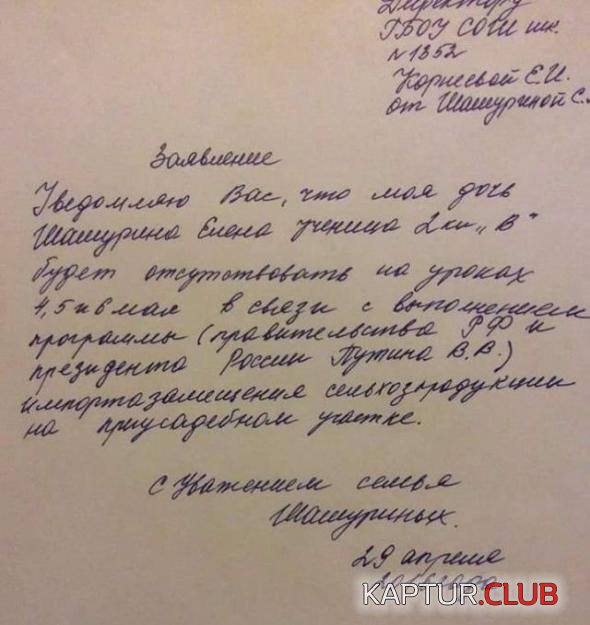 Директору
ГБОУ СОШ шк.
№1352
Корневой Е.И.
от Шашуриной С.
Заявление
Уведомляю Вас, что моя дочь
Шашурина Елена ученица 2кл „В"
будет отсутствовать на уроках
4,5 и 6 мая в связи с выполнением
программы (правительства РФ и
президента России Путина В.В.)
импортазамещения сельхозпродукции
на приусадебном участке.
С Уважением семья
Шашуриных.
29 апреля
KAPTUR.CLUB